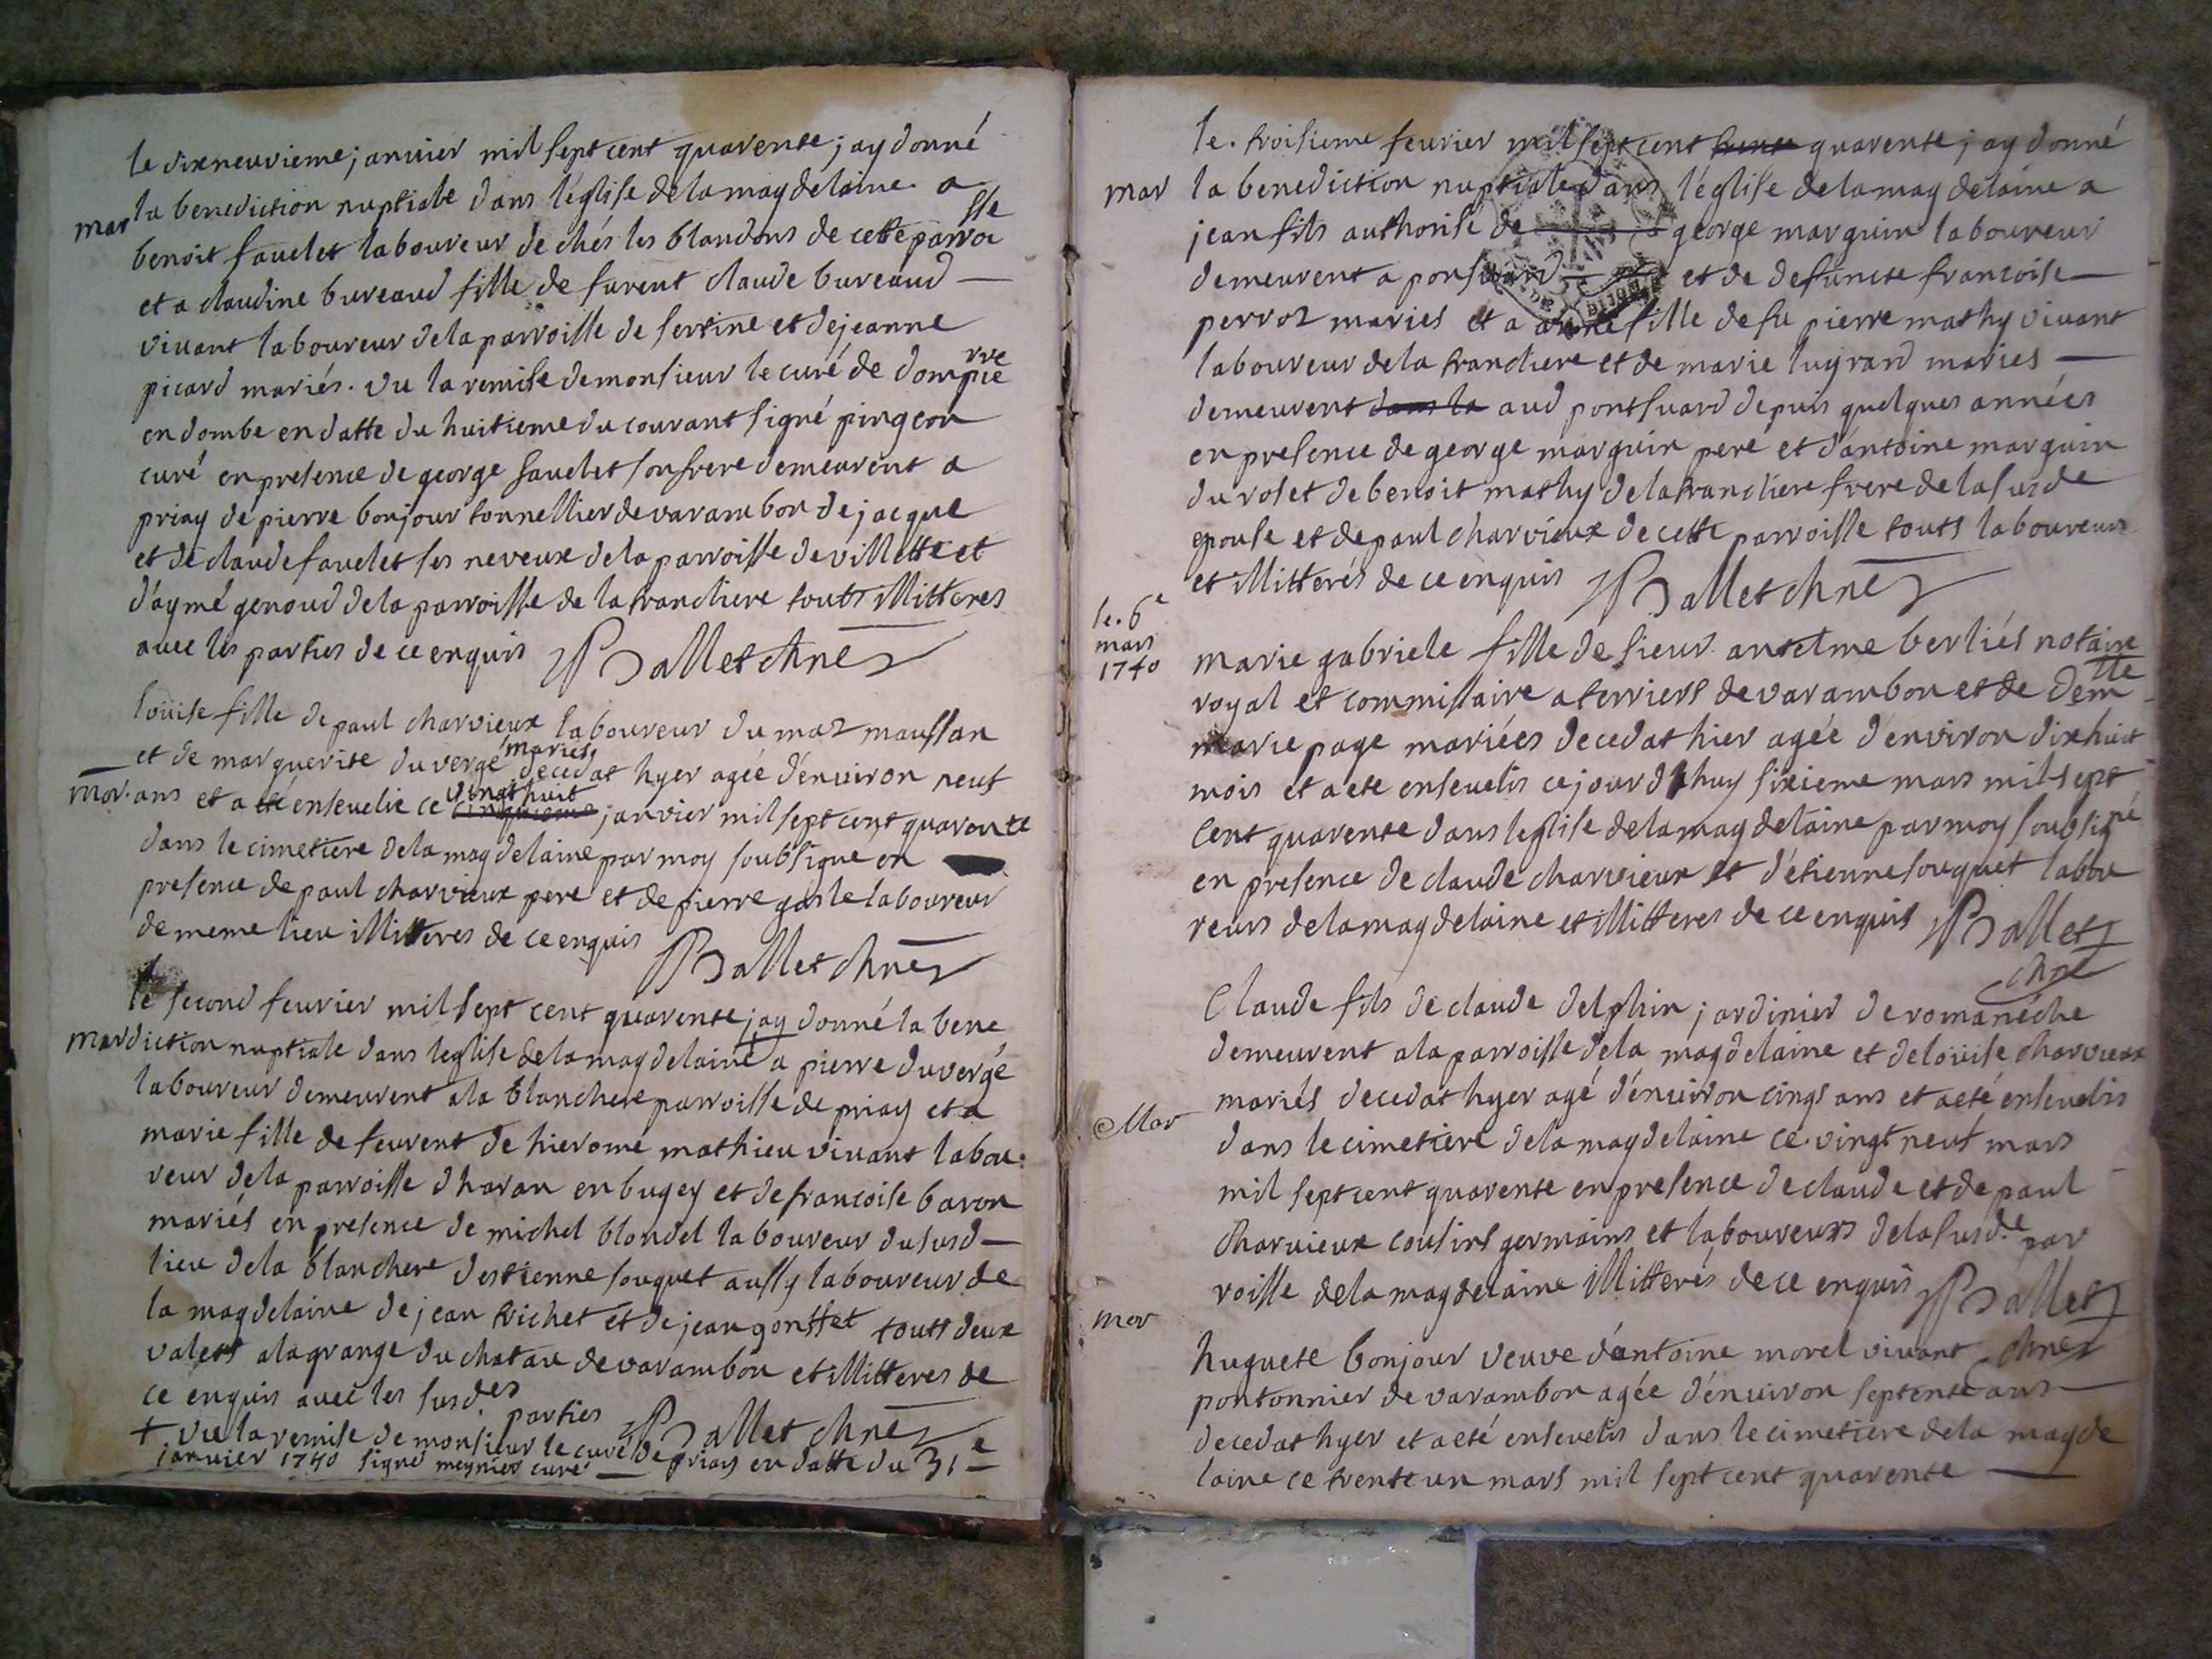 le dixneuvieme janvier mil sept cent quarente j ay donné
mar la benediction nuptiale dans l'église de la magdelaine a
benoit fauclet laboureur de chés les blandons de cette parroisse
et a claudine bureaud fille de furent claude bureaud
vivant laboureur de la parroisse de sertine et de jeanne
picard mariés. vu la remise de monsieur le curé de dompierre
en dombe en datte du huitieme du courant signé pingeon
curé en presence de george fauclet son frere demeurent a
priay de pierre bonjour tonnellier de varambon de jacque
et de claude fauclet ses neveux de la parroisse de villette et
d'aymé genoud de la parroisse de la tranchere touts illitteres
avec les parties de ce enquis Ballet chne
loüise fille de paul charvieux laboureur du maz maussan
et de marguerite duvergé mariés decedat hyer agée d'environ neuf
mor. ans et a été ensevelie ce cinquieme vingt huit janvier mil sept cent quarente
dans le cimetiere de la magdelaine par moy soubsigné en
presence de paul charvieux pere et de pierre gosle laboureur
de meme lieu illitteres de ce enquis
Ballet chne
le second feuvrier mil sept cent quarente j ay donné la bene
mar diction nuptiale dans leglise de la magdelaine a pierre duvergé
laboureur demeurent a la blanchere parroisse de priay et a
marie fille de feurent de hierome mathieu vivant labou:
reur de la parroisse d haran en bugey et de francoise baron
mariés en presence de michel blondel laboureur du susd
lieu de la blanchere d'estienne souquet aussy laboureur de
la magdelaine de jean trichet et de jean gonsset touts deux
valets a la grange du chatau de varambon et illitteres de
ce enquis avec les susd.es parties
Ballet chne
+ vu la remise de monsieur le curé de priay en datte du 31e
janvier 1740 signé meynier curé
le. troisieme feuvrier mil sept cent trente quarente j ay donné
mar la benediction nuptiale dans l'église de la magdelaine a
jean fils authorisé de george marguin laboureur
demeurent a ponsuard et de defuncte francoise
perroz mariés et a fille de fu pierre mathy vivant
laboureur de la tranchere et de marie lugrard mariés
demeurent dans la aud pontsuard depuis quelques années
en presence de george marguin pere et d'antoine marguin
du roset de benoit mathy de la tranchere frere de la susde
epouse et de paul charvieux de cette parroisse touts laboureurs
et illitterés de ce enquis Ballet chne
le. 6e
mars
1740
marie gabriele fille de sieur anselme berliés notaire
royal et commissaire a terriers de varambon et de demlle
marie page mariées decedat hier agée d'environ dixhuit
mois et a eté ensevelis ce jourd'huy sixieme mars mil sept
cent quarente dans leglise de la magdelaine par moy soubsigné
en presence de claude charvieux et d'étienne souquet labou
reurs de la magdelaine et illitteres de ce enquis Ballet
chne
Claude fils de claude delphin jardinier de romanéche
demeurent a la parroisse de la magdelaine et de loüise charvieux
mariés decedat hyer agé d'environ cinqs ans et a eté ensevelis
Mor dans le cimetiere de la magdelaine ce. vingt neuf mars
mil sept cent quarente en presence de claude et de paul
charvieux cousins germains et laboureurs de la susd.e par
roisse de la magdelaine illitterés de ce enquis Ballet
chne
mor
huguete bonjour veuve d'antoine morel vivant
pontonnier de varambon agée d'environ septente ans
decedat hyer et a eté ensevelis dans le cimetiere de la magde
laine ce trente un mars mil sept cent quarente